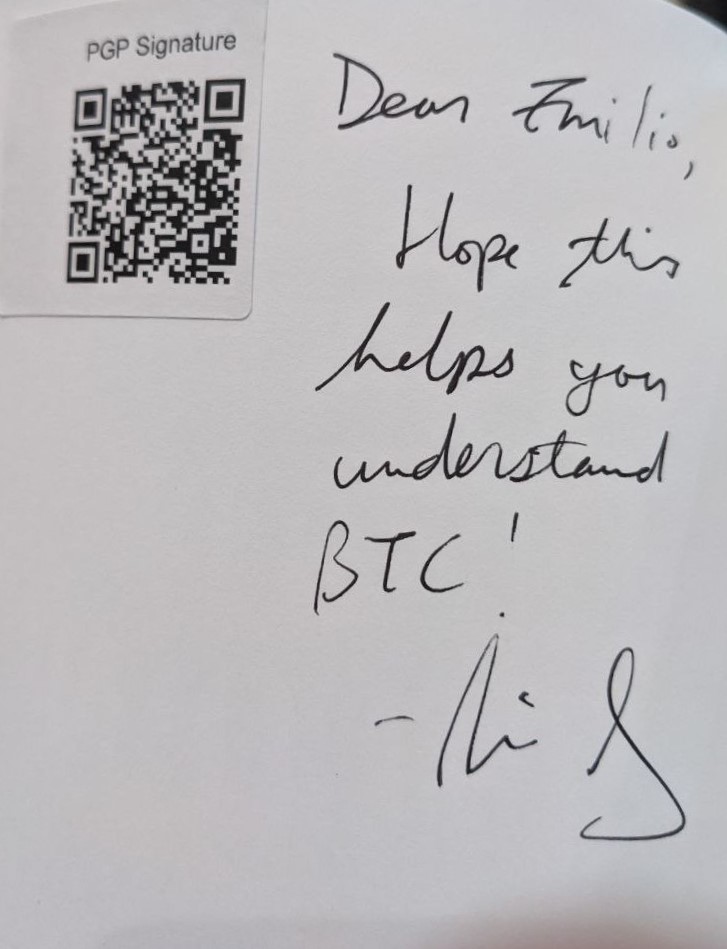 PGP Signature
Dear Emilio,
Hope this
helps you
understand
BTC!